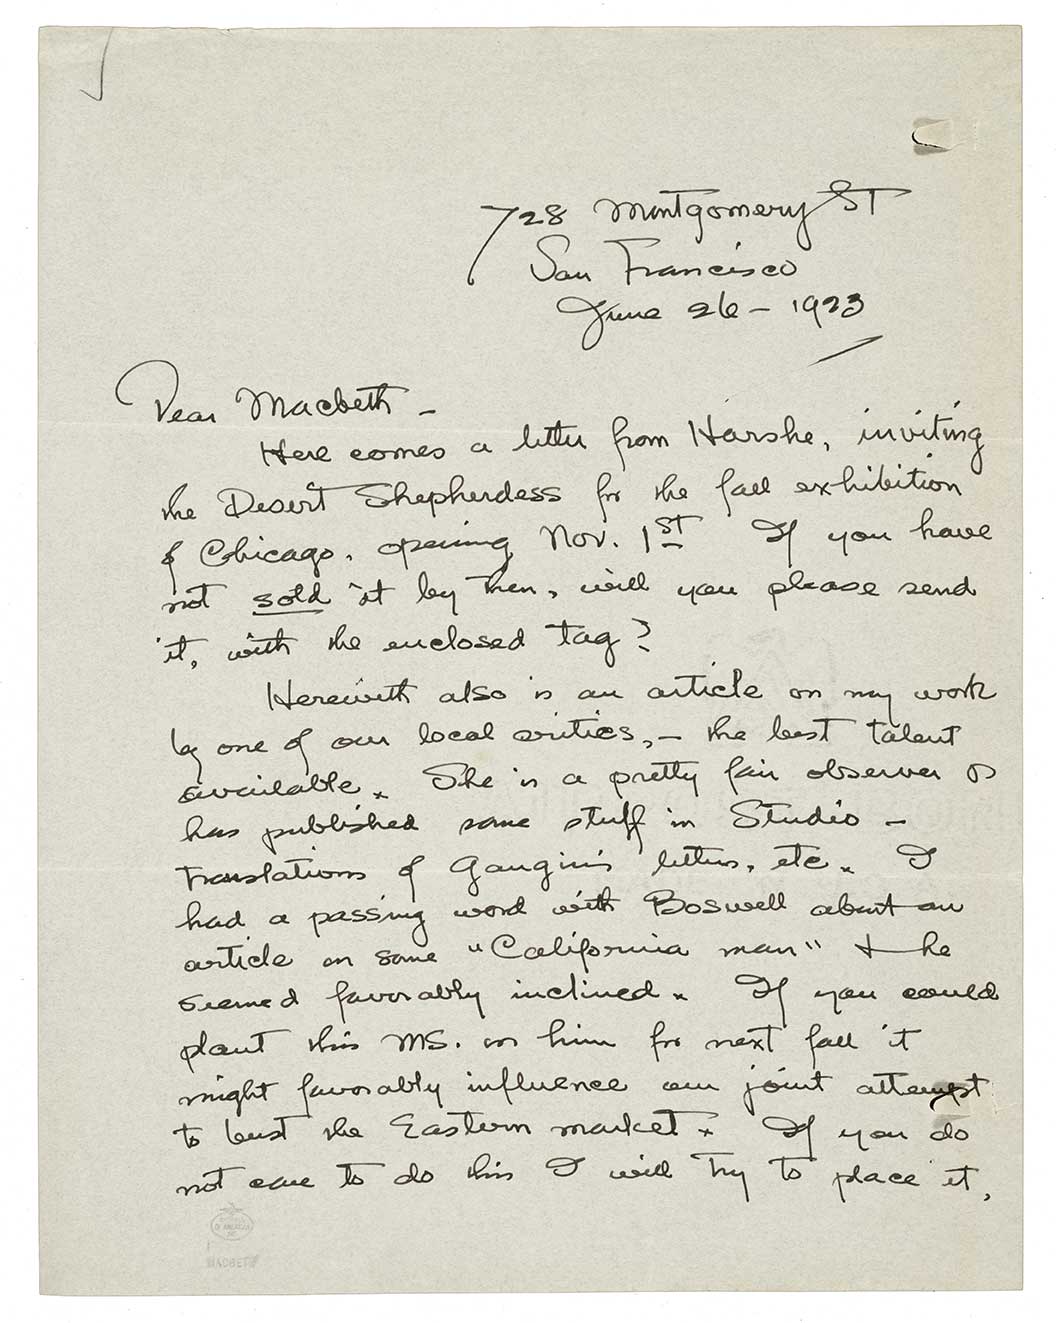 728 Montgomery ST
San Francisco
June 26 – 1923
Dear Macbeth –
Here comes a letter from Harshe, inviting
the Desert Shepherdess for the fall exhibition
of Chicago, opening Nov. 1ST If you have
not sold it by then, will you please send
it, with the enclosed tag?
Herewith also is an article on my work
by one of our local critics, – the best talent
available. She is a pretty fair observer &
has published some stuff in Studio –
translations of Gaugin's letters, etc. I
had a passing word with Boswell about an
article on some "California man" & he
seemed favorably inclined. If you could
plant this MS. on him for next fall it
might favorably influence our joint attempt
to bust the Eastern market. If you do
not care to do this I will try to place it,
OF AMERICAN
MACBETH